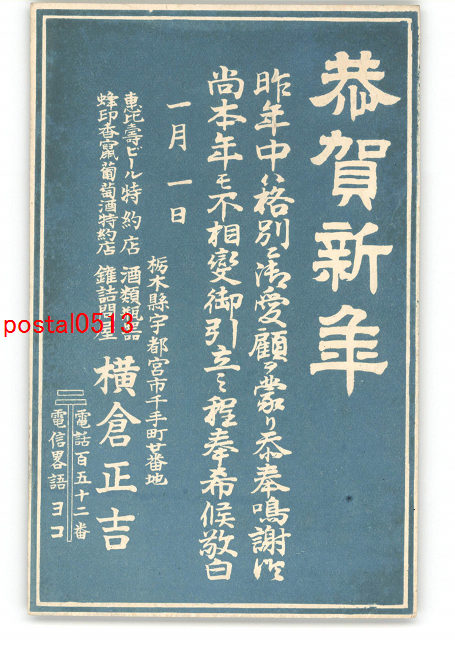 恭賀新年
昨年中ハ格別ニ御愛顧ヲ蒙り恭奉鳴謝候
尚本年モ不相變御引立之程奉希候敬白
一月一日
栃木縣宇都宮市千手町廿番地
恵比壽ビール特約店 酒類
蜂印香竄葡萄酒特約店 鑵詰問屋
横倉正吉
電話百五十二番
電信畧語 ヨコ
postal0513